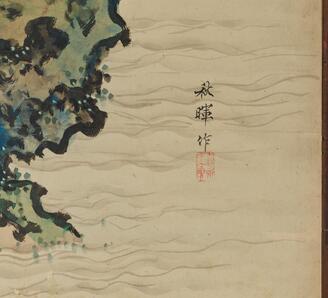 秋暉作